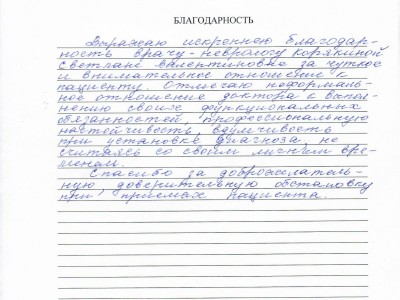 БЛАГОДАРНОСТЬ
Выражаю искреннюю благодар-
ность врачу-неврологу Корякиной
Светлане Валентиновне за чуткое
и внимательное отношение к
пациенту. Отмечаю неформаль-
ное отношение доктора к выпол-
нению своих функциональных
обязанностей, профессиональную
настойчивость, вдумчивость
при установке диагноза, не
считаясь со своим личным вре-
менем.
Спасибо за доброжелатель-
ную, доверительную обстановку
при приемах пациента.